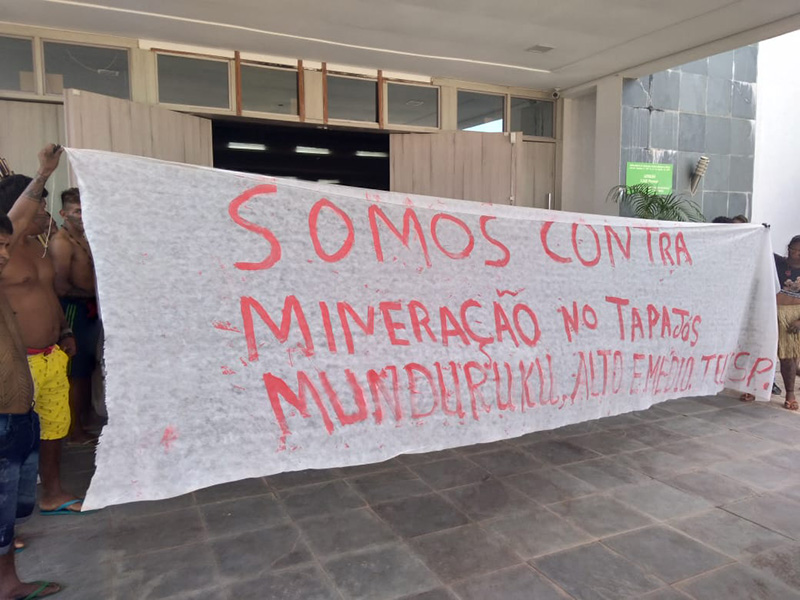 SOMOS CONTRA
MINERAÇÃO NO TAPAJÓS
MUNDURUKU, ALTO E MÉDIO.